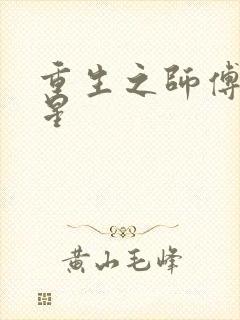 重生之師傅
星
黄山毛峰